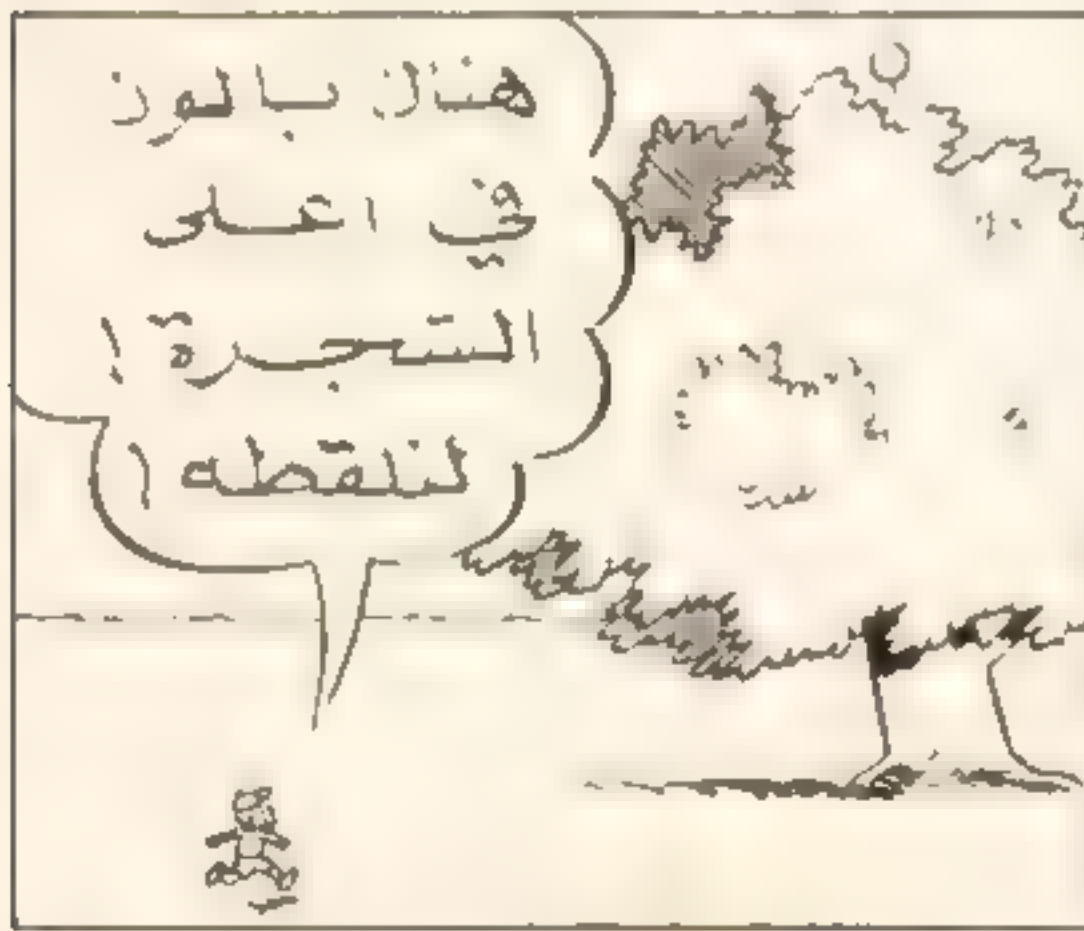 هناك بالون
في اعلى
الشجرة !
لنلقطه !